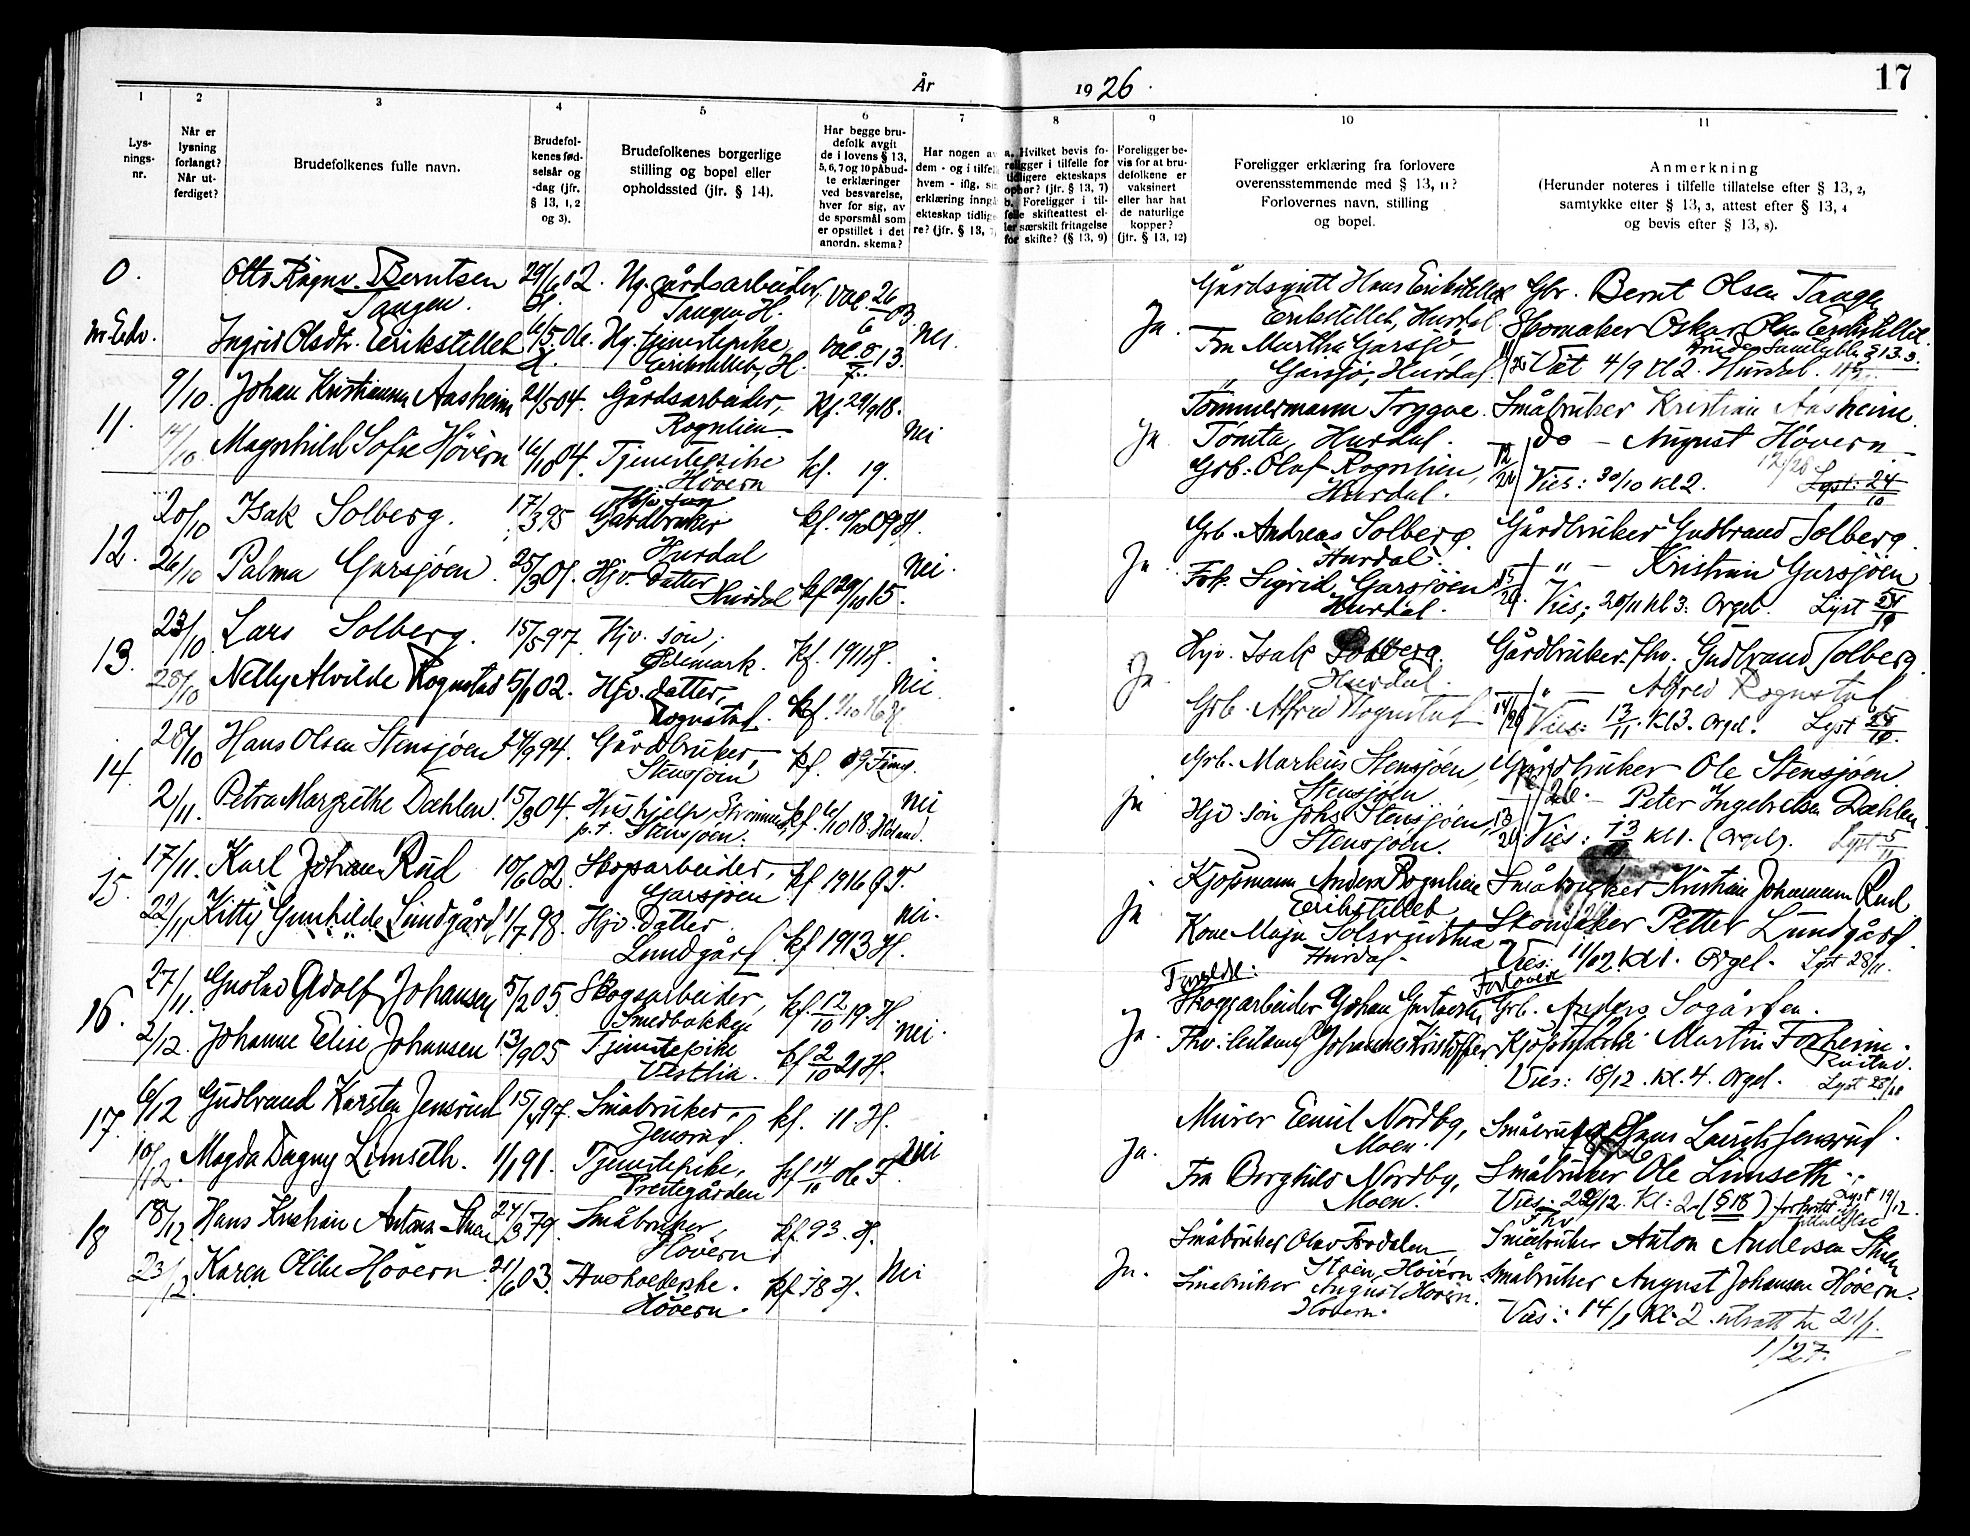 År 1926.
17
1
2
3
4
5
6
7
8
9
10
11
Lysningsnr.
Når er lysning forlangt? Når utferdiget?
Brudefolkenes fulle navn.
Brudefolkenes fødselsår og -dag (jfr. § 13, 1, 2 og 3).
Brudefolkenes borgerlige stilling og bopel eller opholdssted (jfr. § 14).
Har begge brudefolk avgit de i lovens § 13, 5, 6, 7 og 10 påbudte erklæringer ved besvarelse, hver for sig, av de spørsmål som er opstillet i det anordn. skema?
Har nogen av dem - og i tilfelle hvem - iflg. sin erklæring inngå ekteskap tidligere? (jfr. § 13, 7)
a. Hvilket bevis foreligger i tilfelle for tidligere ekteskaps ophør? (jfr. § 13, 7) b. Foreligger i tilfelle skifteattest eller særskilt fritagelse for skifte? (§ 13, 9)
Foreligger bevis for at brudefolkene er vaksinert eller har hat de naturlige kopper? (jfr. § 13, 12)
Foreligger erklæring fra forlovere overensstemmende med § 13, 11? Forlovernes navn, stilling og bopel.
Anmerkning (Herunder noteres i tilfelle tillatelse efter § 13, 2, samtykke efter § 13, 3, attest efter § 13, 4 og bevis efter § 13, 8).
0.
Otto Ragnv. Berntsen 29/6 02. Ug. gårdsarbeider, Vac. 26
Tangen. H. Tangen H.
Ingrid Olsdtr. Eerikstillet 6/5 06. Ug. tjenestepike Vac. 13. Nei.
Eerikstillet, H.
Ja.
Gårdsgutt Hans Erikstillet
Erikstillet, Hurdal
Fru Martha Garsjø
Garsjø, Hurdal.
Gbr. Bernt Olsen Tangen
Skomaker Oskar Olsen Eerikstillet.
Brudens Samtykke § 13.3
Viet 4/9 kl 2. Hurdal.
11.
9/10. Johan Kristiansen Aasheim 21/5 04. Gårdsarbeider, Kf. 29/9 18.
Rognlien.
14/10 Magnhild Sofie Høvern 16/10 04. Tjenestepike kf. 19. Nei
Høvern
Ja
Tømmermann Trygve
Tømta, Hurdal.
Grb. Olaf Rognlien,
Hurdal.
Småbruker Kristian Aasheim.
do - August Høvern.
Vies: 30/10 kl 2. Lyst: 24/10
12.
20/10 Isak Solberg. 17/3 95 Gårdbruker kf. 10/10 09 H.
Hurdal
26/10 Palma Garsjøen. 25/3 07. Hjv. Datter kf 15. Nei.
Hurdal
Ja
Grb. Andreas Solberg.
Hurdal.
Frk. Sigrid Garsjøen
Hurdal.
Gårdbruker Gudbrand Solberg.
" - Kristian Garsjøen
Vies: 20/11 kl 3. Orgel. Lyst
13.
23/10. Lars Solberg. 15/5 97. Hjv. søn, kf. 1911 H.
Ødemark.
28/10 Nelly Alvilde Rognstad 5/1 02. Hjv. datter, kf. Nei
Rognstad.
Ja
Hjv. Isak Solberg.
Hurdal.
Grb. Alfred Rognstad
Gårdbruker fhv. Gudbrand Solberg.
" - Alfred Rognstad
Vies: 13/11. Kl 3. Orgel. Lyst
14.
28/10 Hans Olsen Stensjøen 94. Gårdbruker, kf. 09
Stensjøen
2/11. Petra Margrethe Dæhlen. 15/3 04. Hushjelp, kf. 18. Nei
p.t. Stensjøen.
Ja
Grb. Markus Stensjøen,
Stensjøen
Hjv. søn Johs. Stensjøen,
Stensjøen.
Gårdbruker Ole Stensjøen
- Peter Ingebretsen Dæhlen.
Vies: kl 1. (Orgel). Lyst 5/11
15.
17/11. Karl Johan Rud 10/6 02. Skogsarbeider, kf 1916
Garsjøen
22/11 Kitty Gunhilde Lundgård 1/7 98. Hjv. Datter kf 1913 H. Nei.
Lundgård
Ja
Kjøpmann Anders Rognlien
Erikstillet
Kone Maja
Hurdal.
Småbruker Kristian Johansen Rud
Skomaker Petter Lundgård.
Vies: kl 1. Orgel. Lyst 28/11.
16.
27/11. Gustav Adolf Johansen 5/2 05 Skogsarbeider, kf. 12/10 19. H.
Smedbakken
2/12. Johanne Elise Johansen 13/9 05 Tjenestepike kf 2/10 21 H. Nei.
Vestlia.
Ja.
Foreldre:
Skogsarbeider Johan Gustavsen
Forlovere
Grb. Anders Sogården.
Kjøpmann Martin Foxheim.
Vies: 18/12. Kl. 4. Orgel. Lyst
17.
6/12 Gudbrand Karsten Jensrud 15/4 97. Småbruker, kf. 11. H.
Jensrud.
10/12. Magda Dagny Limseth. 1/1 91. Tjenestepike, kf 14/10 06 F. Nei
Prestegården
Ja.
Murer Eemil Nordby,
Moen.
Fru Borghild Nordby,
Moen.
Småbruker Hans Laurits Jensrud.
Småbruker Ole Limseth.
Vies: 22/12. Kl: 2. (§ 18) Lyst 19/12.
18
18/12. Hans Kristian Antons. 79. Småbruker, kf. 93. H.
Høvern
23/12. Karen Oline Høvern 21/6 03. Husholderske. kf 18 H. Nei
Høvern.
Ja.
Småbruker Olav Frodalen
Høvern
Småbruker August Høvern.
Høvern.
Fhv
Småbruker Anton Andersen
Småbruker August Johansen Høvern.
Vies: 14/1 Kl. 2.
1/27.